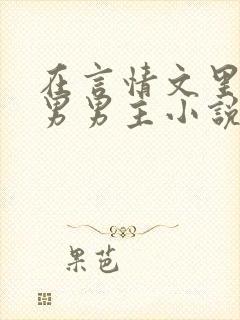 在言情文里
男男主小说
果芭